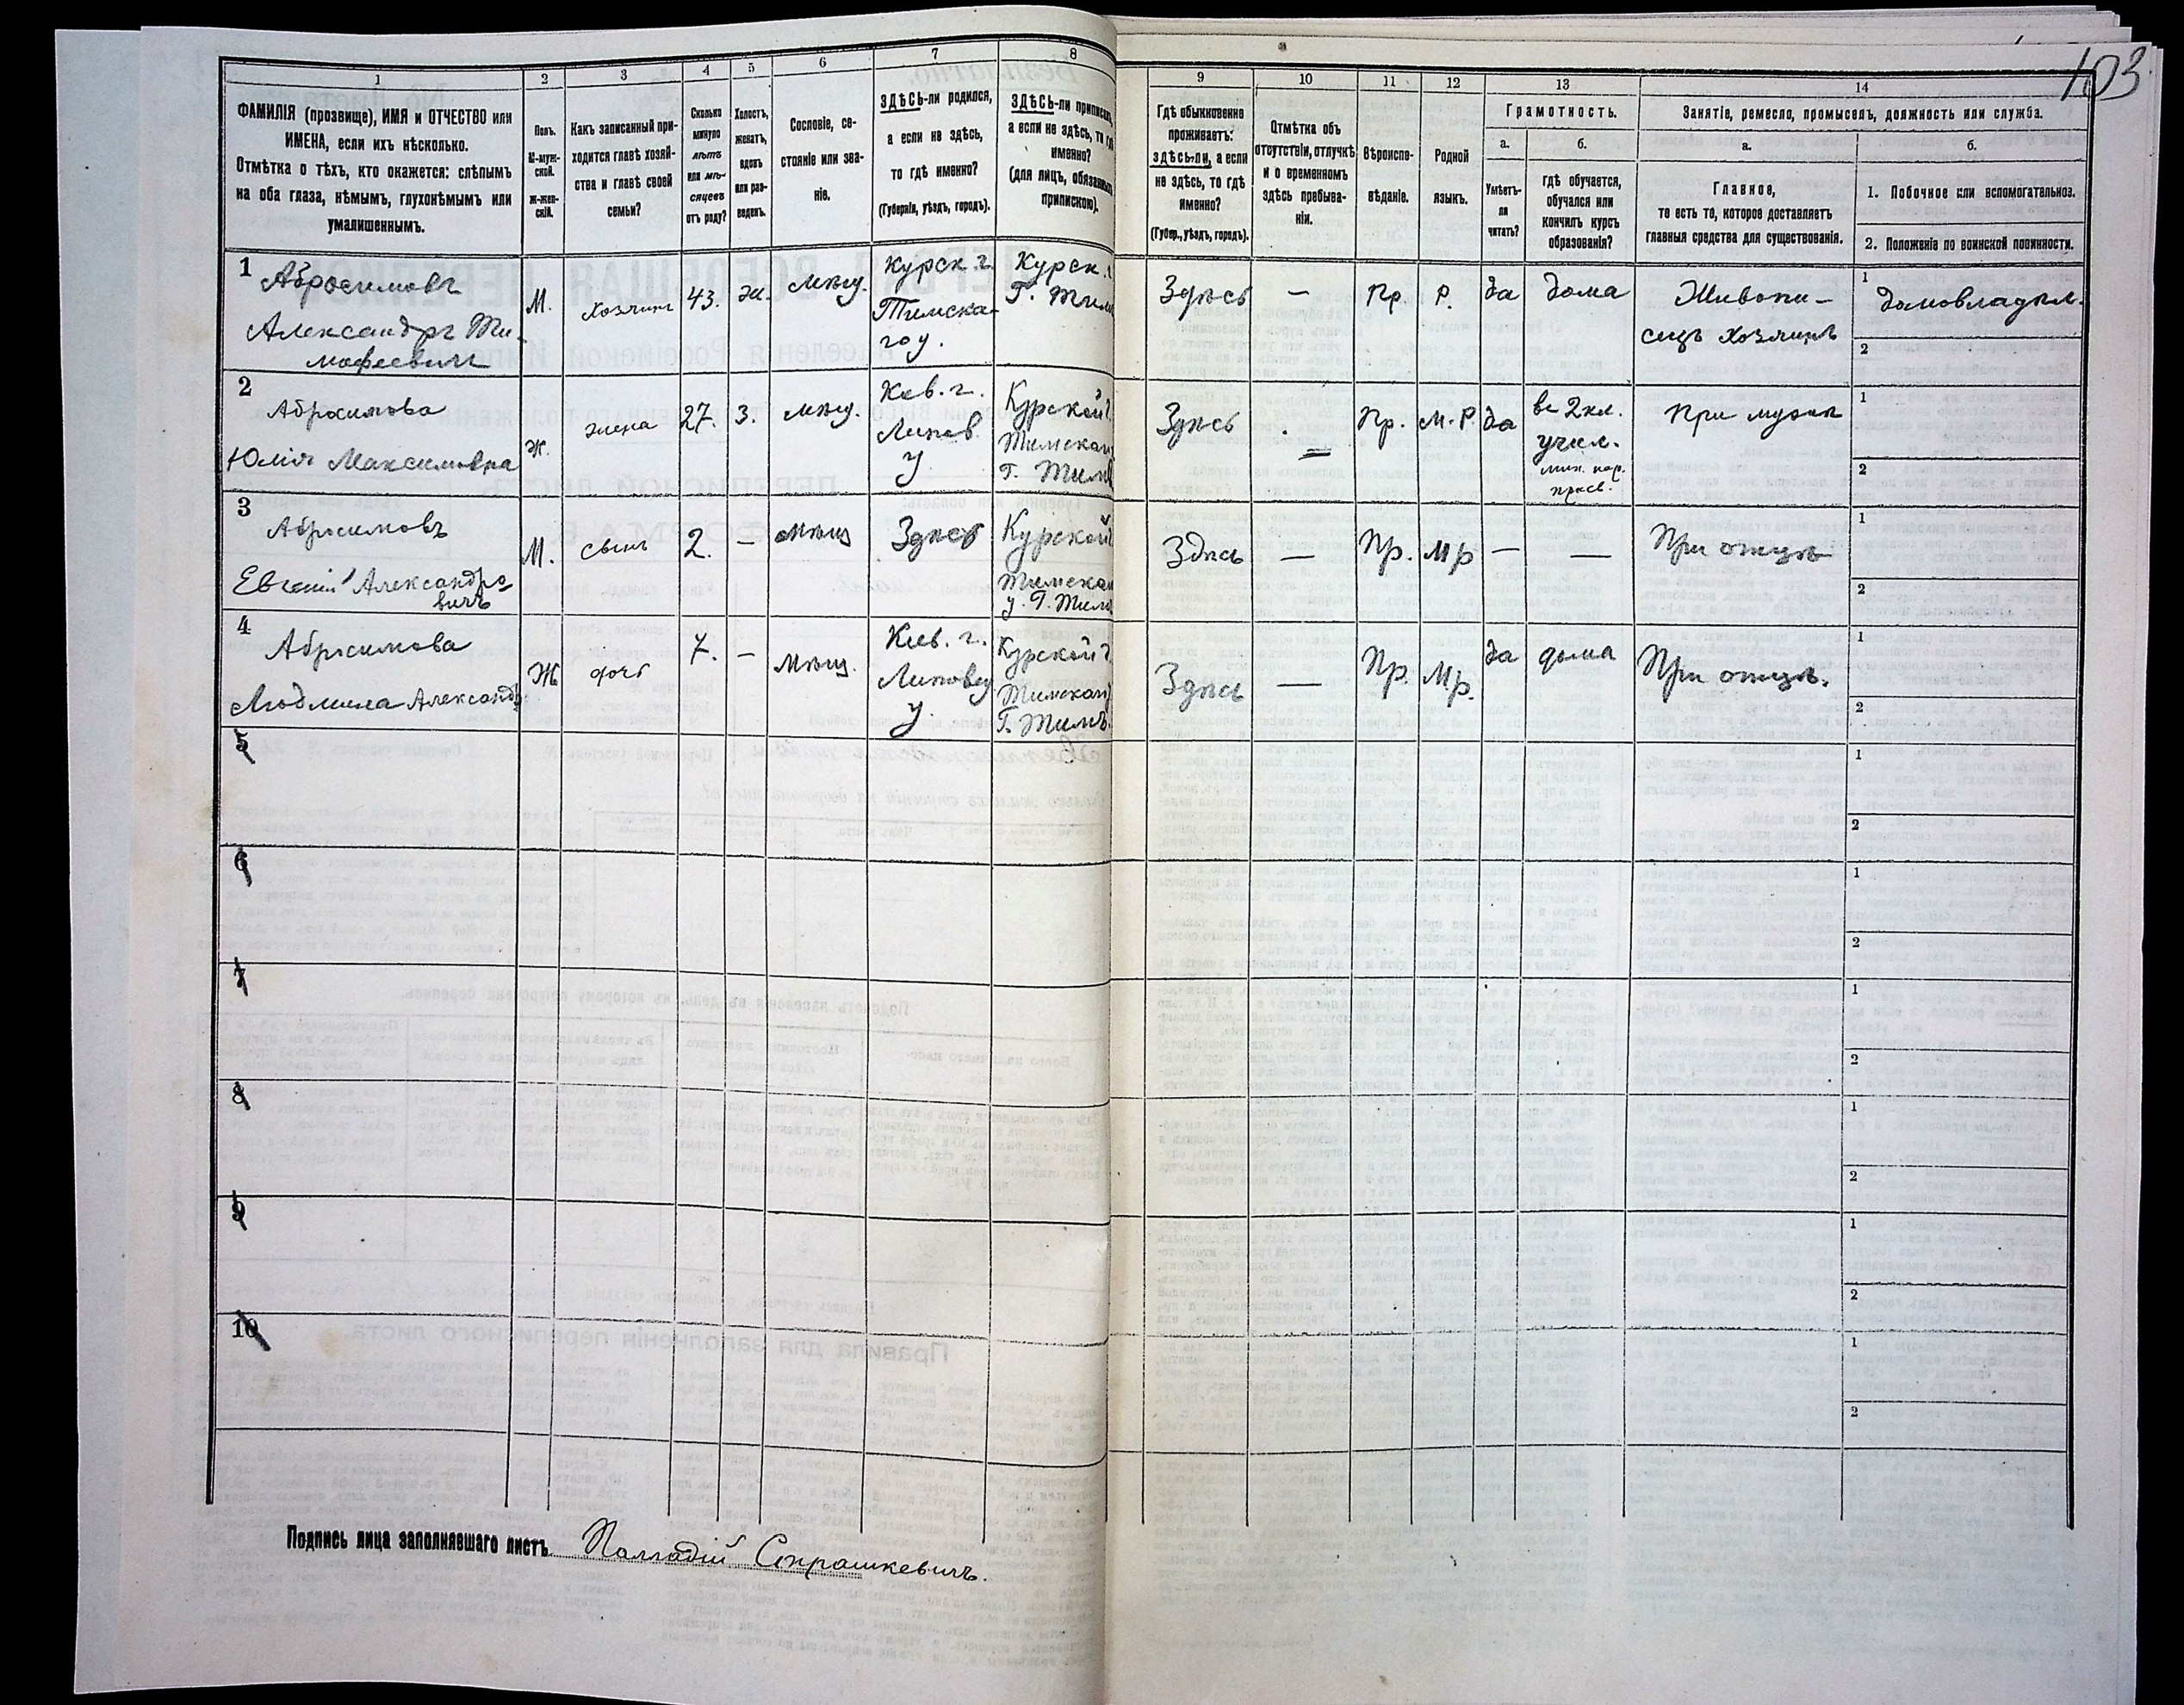 103
1
2
3
4
5
6
7
8
9
10
11
12
13
14
ФАМИЛІЯ (прозвище), ИМЯ и ОТЧЕСТВО или
ИМЕНА, если ихъ нѣсколько.
Отмѣтка о тѣхъ, кто окажется: слѣпымъ
на оба глаза, нѣмымъ, глухонѣмымъ или
умалишеннымъ.
Полъ.
М-муж-
ской.
Ж-жен-
скій.
Какъ записанный при-
ходится главѣ хозяй-
ства и главѣ своей
семьи?
Сколько
минуло
лѣтъ
или мѣ-
сяцевъ
отъ роду?
Холостъ,
женатъ,
вдовъ
или раз-
веденъ.
Сословіе, со-
стояніе или зва-
ніе.
ЗДѢСЬ-ли родился,
а если не здѣсь,
то гдѣ именно?
(Губернія, уѣздъ, городъ).
ЗДѢСЬ-ли приписанъ,
а если не здѣсь, то гдѣ
именно?
(для лицъ, обязанныхъ
припискою).
Гдѣ обыкновенно
проживаетъ:
здѣсь-ли, а если
не здѣсь, то гдѣ
именно?
(Губер., уѣздъ, городъ).
Отмѣтка объ
отсутствіи, отлучкѣ
и о временномъ
здѣсь пребыва-
ніи.
Вѣроиспо-
вѣданіе.
Родной
языкъ.
Грамотность.
а.
б.
Умѣетъ-
ли
читать?
гдѣ обучается,
обучался или
кончилъ курсъ
образованія?
Занятіе, ремесло, промыселъ, должность или служба.
а.
б.
Главное,
то есть то, которое доставляетъ
главныя средства для существованія.
1. Побочное или вспомогательное.
2. Положеніе по воинской повинности.
1
Абросимовъ
Александръ Ти-
мофеевичъ
М.
Хозяинъ
43.
Жен.
мѣщ.
Курск. г.
Тимска-
го у.
Курск. г.
Г. Тим
Здѣсь
—
Пр.
Р.
да
дома
Живопи-
сецъ хозяинъ
1
домовладѣл.
2
2
Абросимова
Юлія Максимовна
Ж.
жена
27.
З.
мѣщ.
Киев. г.
Липов
у
Курской г.
Тимскаго
Г. Тим
Здѣсь
Пр.
М. Р.
да
въ 2 кл.
учил.
мин. нар.
прсв.
При мужѣ
1
2
3
Абросимовъ
Евгеній Александро-
вичъ
М.
сынъ
2.
—
мѣщ
Здѣсь
Курской
Тимскаго
у. Г. Тим
Здѣсь
—
Пр.
М р
—
—
При отцѣ
1
2
4
Абросимова
Людмила Александр.
Ж
дочь
7.
—
мѣщ.
Киев. г.
Липовец
у.
Курской г.
Тимскаго
Г. Тимъ.
Здѣсь
—
Пр.
М р.
да
дома
При отцѣ.
1
2
5
1
2
6
1
2
7
1
2
8
1
2
9
1
2
10
1
2
Подпись лица заполнявшаго листъ Палладій Страшкевичъ.